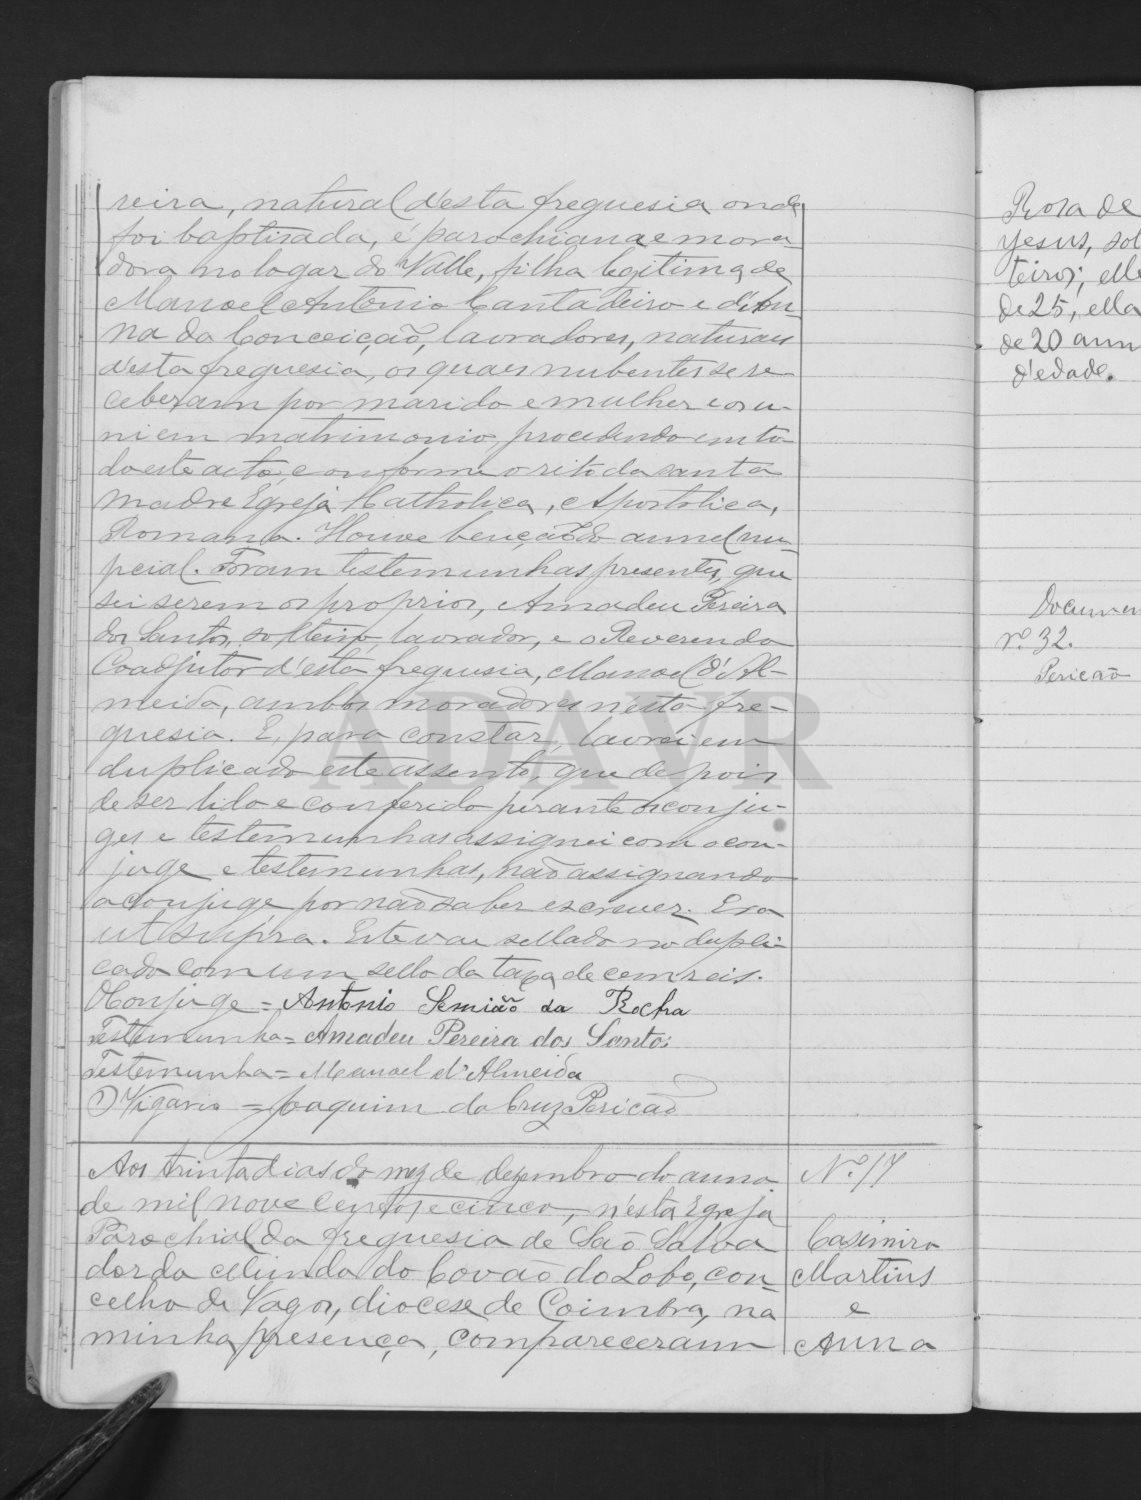 reira, natural d'esta freguesia onde
foi baptisada, é parochiana e mora-
dora no logar do Valle, filha legitima de
Manoel Antonio Cantadeiro e d'An-
na da Conceição, lavradores, naturaes
d'esta freguesia, os quaes nubentes se re-
ceberam por marido e mulher e os u-
ni em matrimonio, procedendo em to-
do este acto, conforme o rito da santa
Madre Egreja Catholica, Apostolica,
Romana. Houve benção do annel nu-
pcial. Foram testemunhas presentes, que
sei serem os proprios, Amadeu Pereira
dos Santos, solteiro, lavrador, e o Reverendo
Coadjutor d'esta freguesia, Manoel d'Al-
meida, ambos moradores n'esta fre-
guesia. E, para constar, lavrei em
duplicado este assento, que depois
de ser lido e conferido perante os conju-
ges e testemunhas assignei com o con-
juge e testemunhas, não assignando
a conjuge por não saber escrever. Era
ut supra. Este vae sellado no dupli-
cado com um sello da taxa de cem reis.
O Conjuge = Antonio Semião da Rocha
Testemunha = Amadeu Pereira dos Santos
Testemunha = Manoel d'Almeida
O Vigario = Joaquim da Cruz Pericão
Aos trinta dias do mez de dezembro do anno
de mil nove centos e cinco, n'esta Egreja
Parochial da freguesia de São Salva
dor da Munda do Covão do Lobo, con-
celho de Vagos, diocese de Coimbra, na
minha presença, compareceram
Nº 17
Casimiro
Martins
e
Anna
Rosa de
Jesus, sol
teiros; elle
de 25, ella
de 20 ann
d'edade.
Documen
nº 32.
Pericão
ADAVR